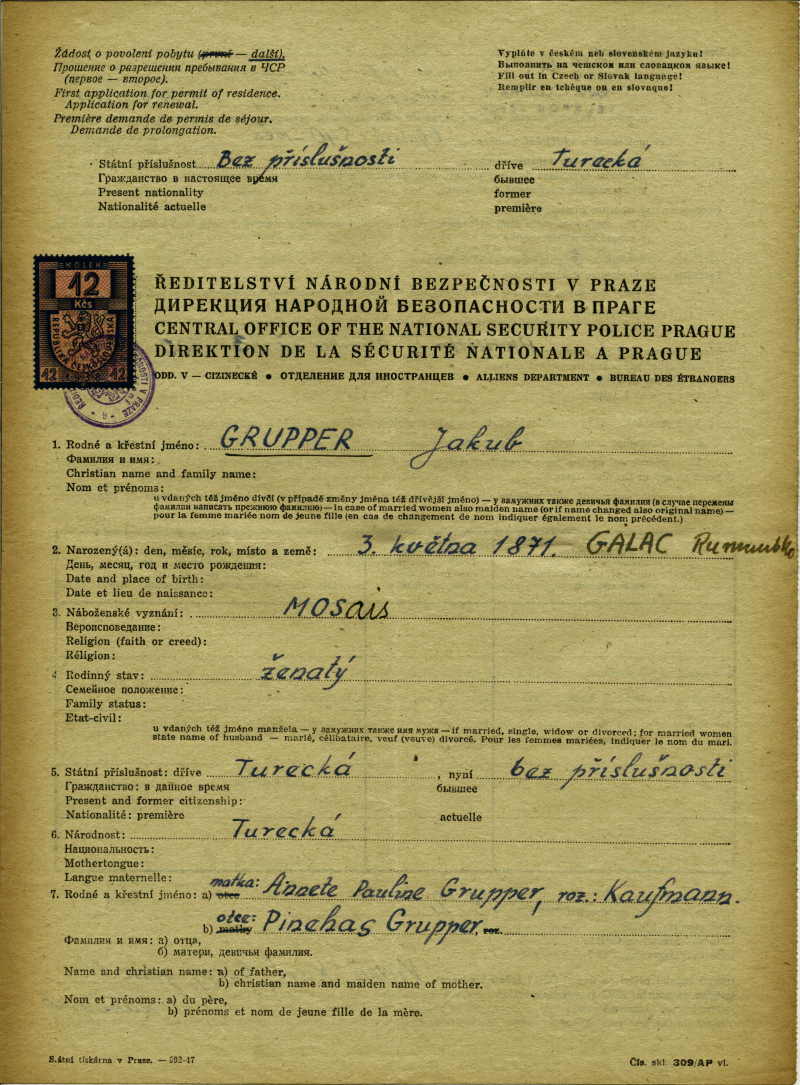 Žádost o povolení pobytu (první — další).
Прошение о разрешении пребывания в ЧСР
(первое — второе).
First application for permit of residence.
Application for renewal.
Première demande de permis de séjour.
Demande de prolongation.
Vyplňte v českém neb slovenském jazyku!
Выполнить на чешском или словацком языке!
Fill out in Czech or Slovak language!
Remplir en tchèque ou en slovaque!
Státní příslušnost Bez příslušnosti dříve Turecká
Гражданство в настоящее время бывшее
Present nationality former
Nationalité actuelle première
KOLEK
12
Kčs
REPUBLIKA ČESKOSLOVENSKÁ
12 12
ŘEDITELSTVÍ NÁRODNÍ BEZPEČNOSTI V PRAZE
ДИРЕКЦИЯ НАРОДНОЙ БЕЗОПАСНОСТИ В ПРАГЕ
CENTRAL OFFICE OF THE NATIONAL SECURITY POLICE PRAGUE
DIREKTION DE LA SÉCURITÉ NATIONALE A PRAGUE
ODD. V — CIZINECKÉ • ОТДЕЛЕНИЕ ДЛЯ ИНОСТРАНЦЕВ • ALLIENS DEPARTMENT • BUREAU DES ÉTRANGERS
1. Rodné a křestní jméno: GRUPPER Jakub
Фамилия и имя:
Christian name and family name:
Nom et prénoms:
u vdaných též jméno dívčí (v případě změny jména též dřívější jméno) — у замужних также девичья фамилия (в случае перемены
фамилии написать прежнюю фамилию) — in case of married women also maiden name (or if name changed also original name) —
pour la femme mariée nom de jeune fille (en cas de changement de nom indiquer également le nom précédent.)
2. Narozený(á): den, měsíc, rok, místo a země: 3. května 1871. GALAC Rumunsko
День, месяц, год и место рождения:
Date and place of birth:
Date et lieu de naissance:
3. Náboženské vyznání: MOSAIS
Вероисповедание:
Religion (faith or creed):
Réligion:
4 Rodinný stav: ženatý
Семейное положение:
Family status:
Etat-civil:
u vdaných též jméno manžela — у замужних также имя мужа — if married, single, widow or divorced; for married women
state name of husband — marié, célibataire, veuf (veuve) divorcé. Pour les femmes mariées, indiquer le nom du mari.
5. Státní příslušnost: dříve Turecká, nyní bez příslušnosti
Гражданство: в данное время бывшее
Present and former citizenship:
Nationalité: première actuelle
6. Národnost: Turecká
Национальность:
Mothertongue:
Langue maternelle:
7. Rodné a křestní jméno: a) otce matka: Annete Pauline Grupper, roz.: Kaufmann.
b) matky otec: Pinehas Grupper, roz.
Фамилия и имя: а) отца,
б) матери, девичья фамилия.
Name and christian name: a) of father,
b) christian name and maiden name of mother.
Nom et prénoms: a) du père,
b) prénoms et nom de jeune fille de la mère.
Státní tiskárna v Praze. — 592-47
Čís. skl. 309/AP vl.